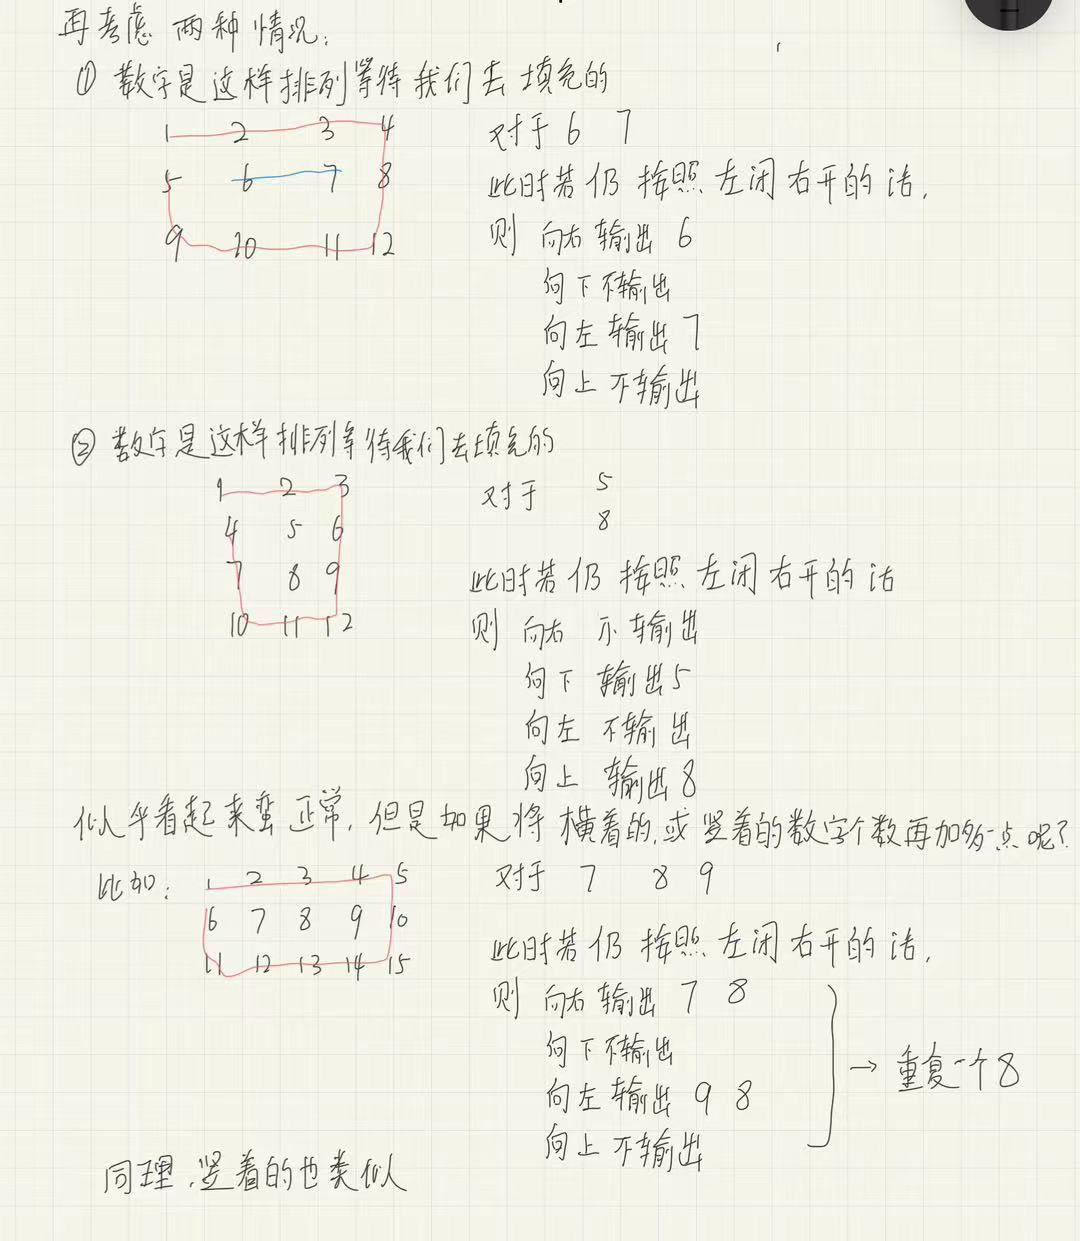 再考虑两种情况:
① 数字是这样排列等待我们去填充的
1 2 3 4
5 6 7 8
9 10 11 12
对于 6 7
此时若仍按照左闭右开的话,
则 向右输出 6
向下不输出
向左输出 7
向上不输出
② 数字是这样排列等待我们去填充的
1 2 3
4 5 6
7 8 9
10 11 12
对于 5
8
此时若仍按照左闭右开的话
则 向右 不输出
向下 输出5
向左 不输出
向上 输出8
似乎看起来蛮正常,但是如果将横着的,或竖着的数字个数再加多一点呢?
比如: 1 2 3 4 5
6 7 8 9 10
11 12 13 14 15
对于 7 8 9
此时若仍按照左闭右开的话,
则 向右输出 7 8
向下不输出
向左输出 9 8
向上 不输出
→ 重复一个8
同理,竖着的也类似